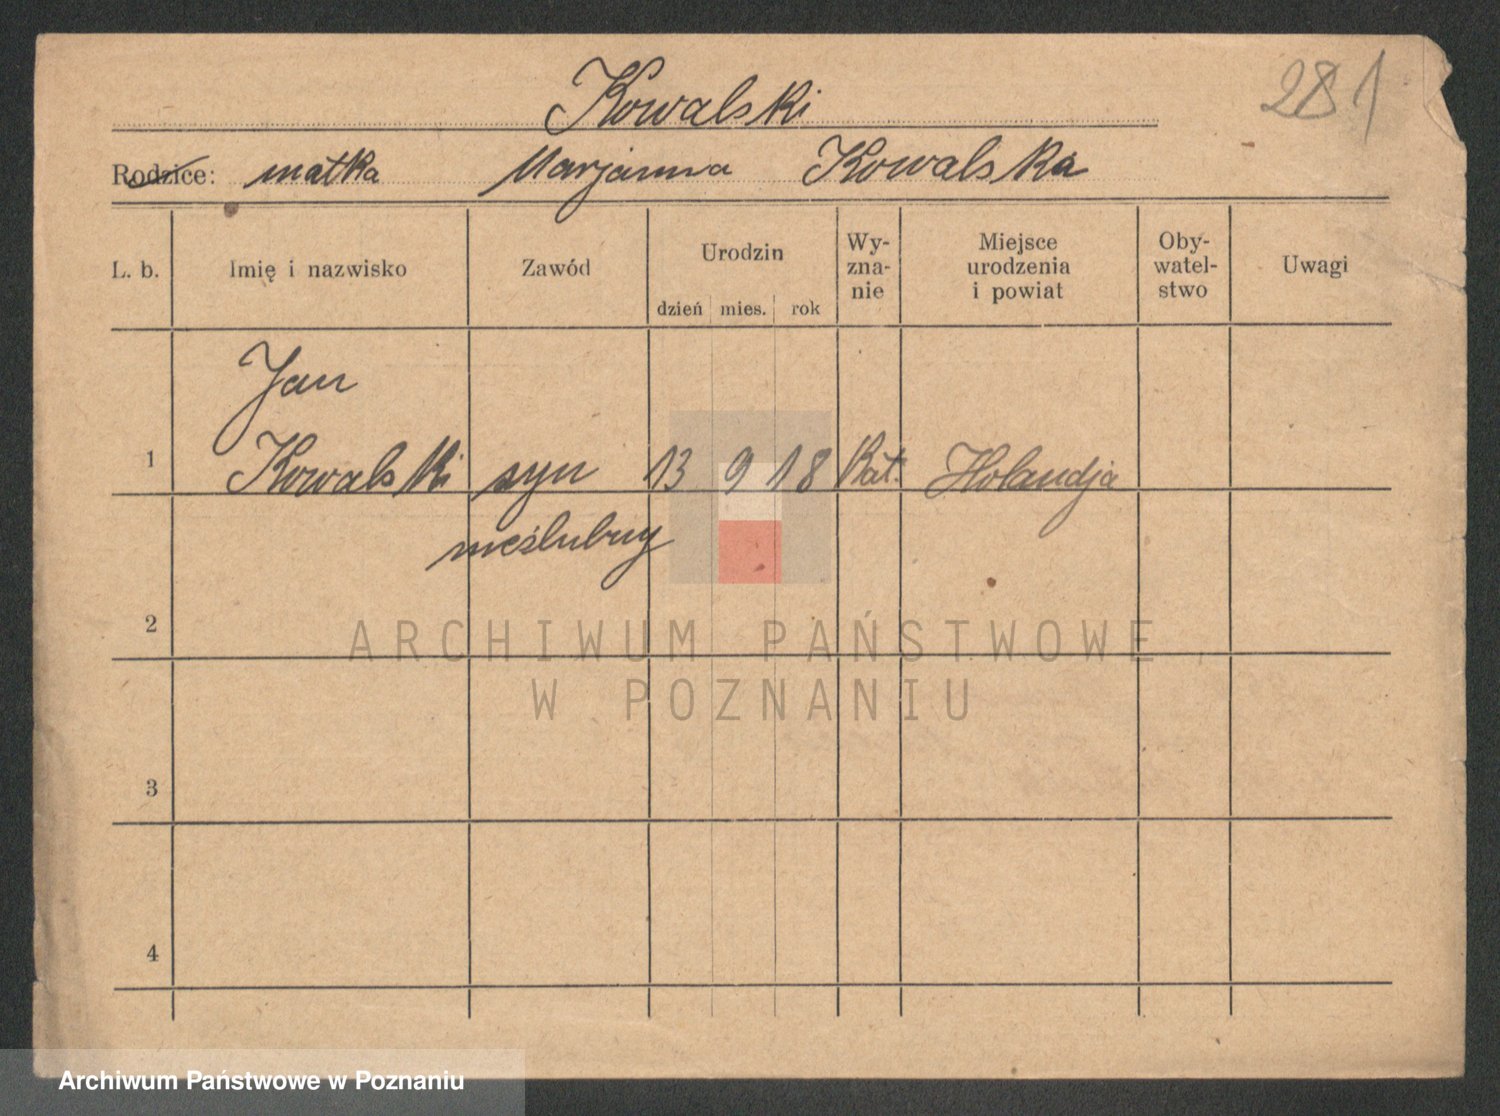 Kowalski
281
Rodzice: matka Marjanna Kowalska
L. b. Imię i nazwisko Zawód Urodzin dzień mies. rok Wy-zna-nie Miejsce urodzenia i powiat Oby-watel-stwo Uwagi
Jan
1 Kowalski syn 13 9 18 Kat. Holandja
nieślubny
2
ARCHIWUM PAŃSTWOWE
W POZNANIU
3
4
Archiwum Państwowe w Poznaniu